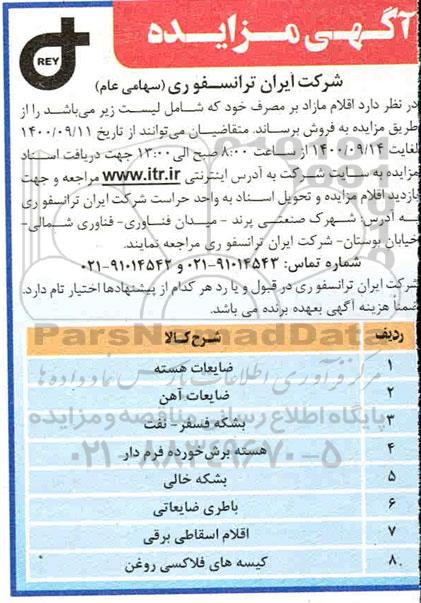 آگهی مزایده
REY
شرکت ایران ترانسفو ری (سهامی عام)
در نظر دارد اقلام مازاد بر مصرف خود که شامل لیست زیر می‌باشد را از
طریق مزایده به فروش برساند. متقاضیان می‌توانند از تاریخ ۱۴۰۰/۰۹/۱۱
لغایت ۱۴۰۰/۰۹/۱۴ از ساعت ۸:۰۰ صبح الی ۱۳:۰۰ جهت دریافت اسناد
مزایده به سایت شرکت به آدرس اینترنتی www.itr.ir مراجعه و جهت
بازدید اقلام مزایده و تحویل اسناد به واحد حراست شرکت ایران ترانسفو ری
به آدرس: شهرک صنعتی پرند - میدان فناوری- فناوری شمالی-
خیابان بوستان- شرکت ایران ترانسفو ری مراجعه نمایند.
شماره تماس: ۹۱۰۱۴۵۴۳-۰۲۱ و ۹۱۰۱۴۵۴۲-۰۲۱
شرکت ایران ترانسفو ری در قبول و یا رد هر کدام از پیشنهادها اختیار تام دارد.
ضمناً هزینه آگهی بعهده برنده می باشد.
ParsNamadData
ردیف شرح کالا
۱ ضایعات هسته
مرکز فرآوری اطلاعات پارس نماد داده ها
۲ ضایعات آهن
پایگاه اطلاع رسانی مناقصه و مزایده
۳ بشکه فسفر - نفت
۴ هسته برش خورده فرم دار
۰۲۱-۸۸۳۴۹۶۷۰-۵
۵ بشکه خالی
۶ باطری ضایعاتی
۷ اقلام اسقاطی برقی
۸ کیسه های فلاکسی روغن